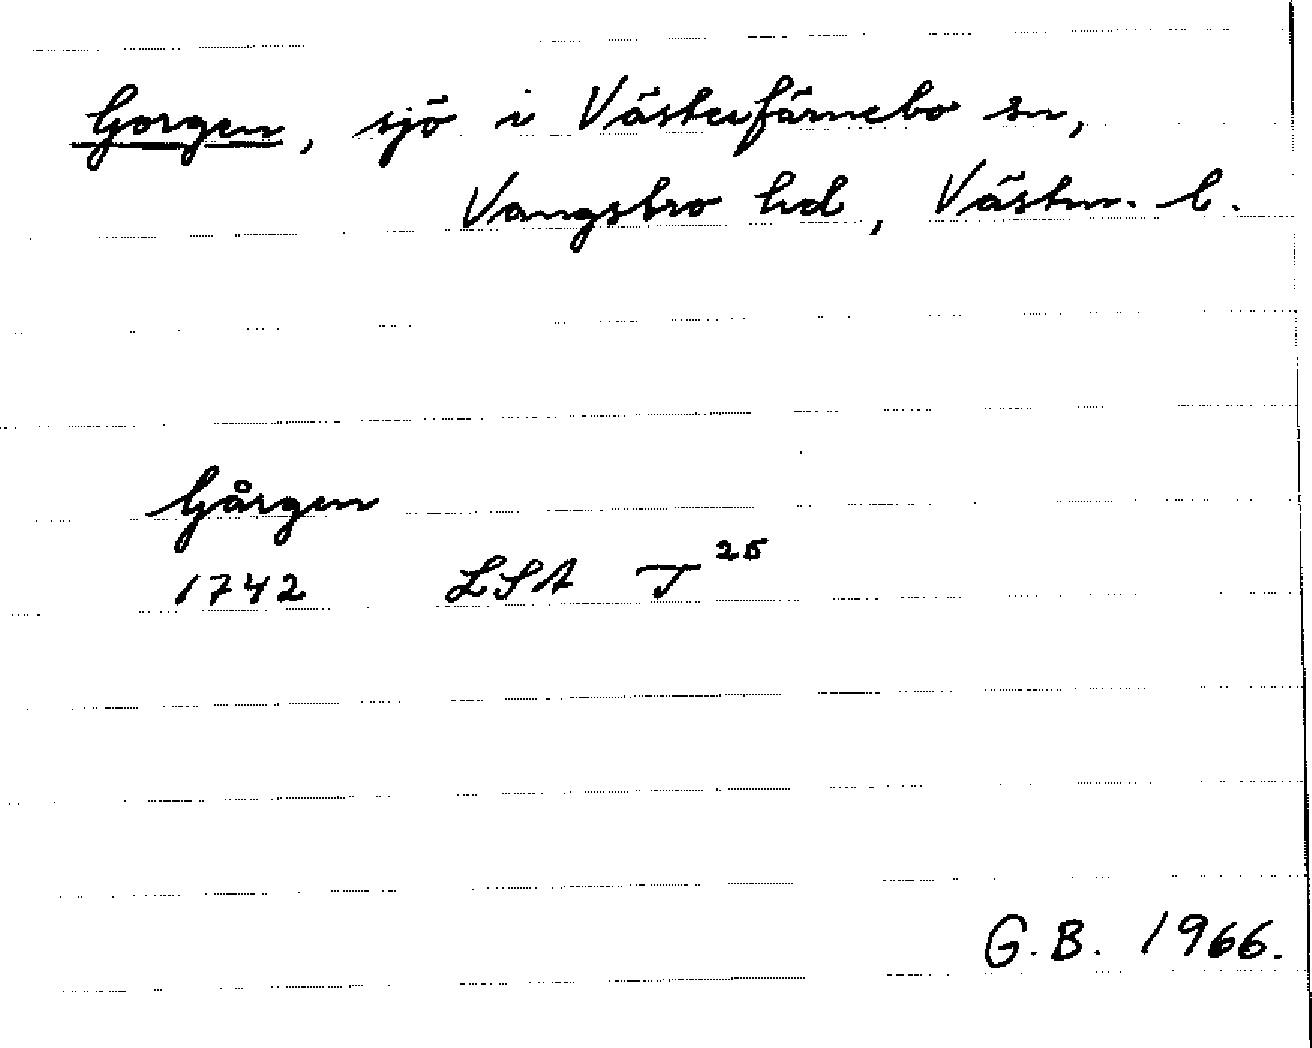 Gorgen, sjö i Västerfärnebo sn,
Vangsbro hd, Västm. l.
Gårgen
1742 LSA T 25
G.B. 1966.